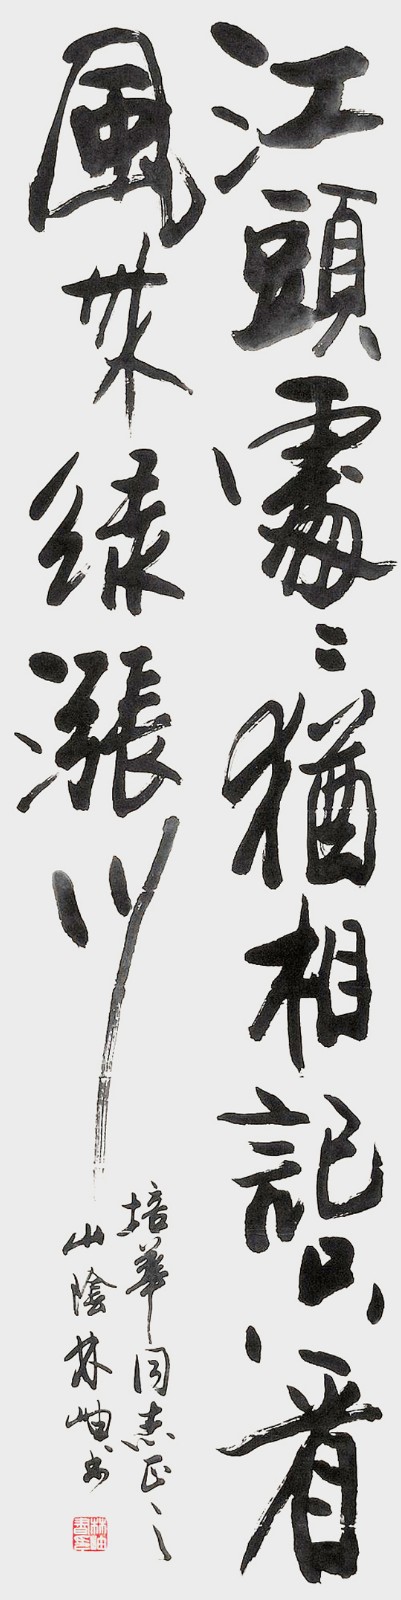 江頭處〻猶相記只看
風來綠漲川
培華同志正之
山陰林岫書